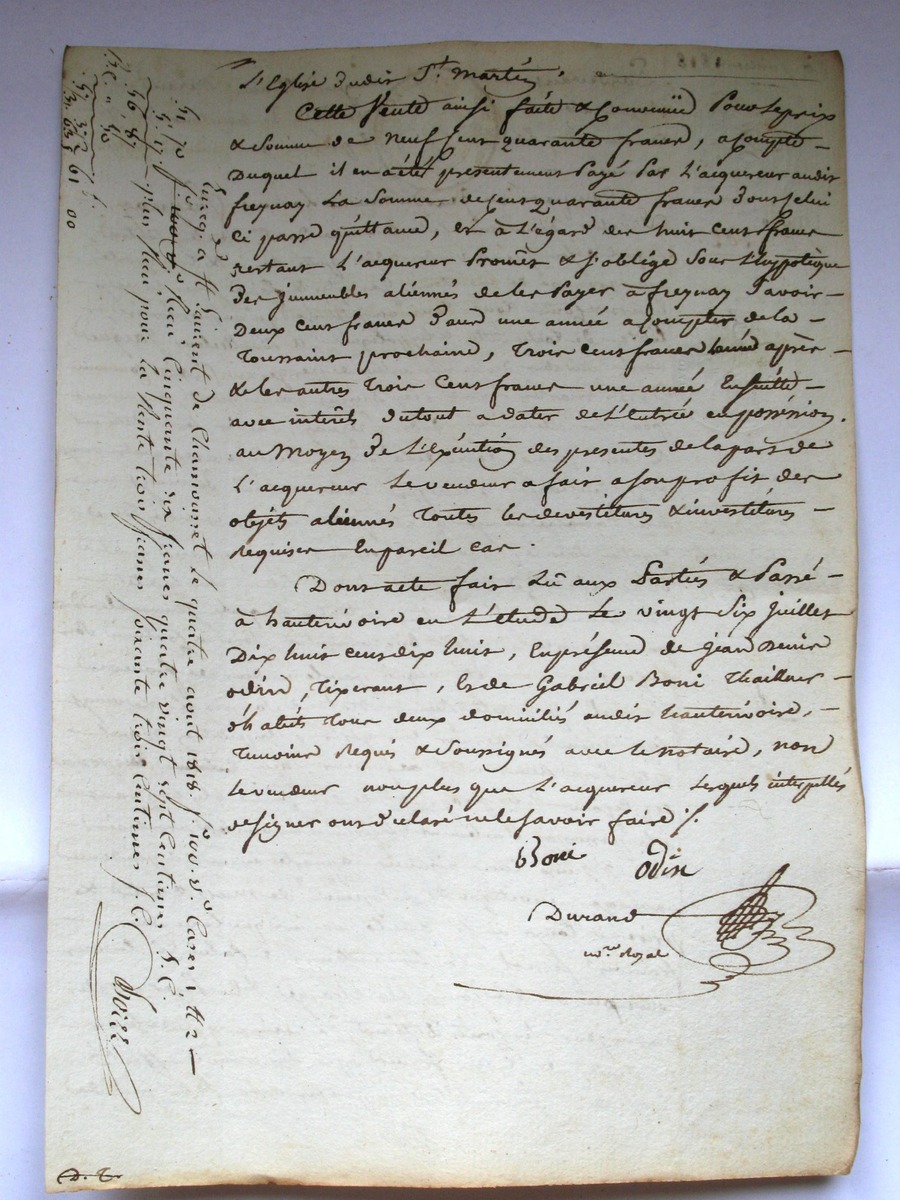 L'Eglise dudit St. Martin.
Cette Vente ainsi faite & Convenüe Pour le prix
& Somme de neuf Cent quarante francs, a Compte
Duquel il en a été presentement Payé Par l'acquereur audit
freynay La Somme de Cent quarante francs dont celui
Ci passe quittance, et à l'égard des huit Cent francs
restant l'acquereur Promet & s'oblige Sous l'hypotèque
Des Immeubles aliennés de les Payer à freynay Savoir
Deux Cent francs Dans une année a Compter de la
Toussaint prochaine, trois Cent francs l'année après
& les autres trois Cent francs une année Ensuitte
avec interêt du tout a dater de l'entrée en possession.
au Moyen De l'exécution des presentes de la part de
l'acquereur Le vendeur a fait a Son profit des
objets aliennés toutes les devestitures & investitures
requises En pareil cas.
Dont acte fait Lû aux Parties & Passé
à hauterivoire en l'étude Le vingt Six Juillet
Dix huit cent dix huit, En présence de Jean Denis
odin, tixerant, et de Gabriel Boni thailleur
d'habits tous deux domiciliés audit hauterivoire,
temoins Requis & Soussignés avec le notaire, non
Le vendeur non plus que l'acquereur Lesquels interpellés
de Signer ont Déclaré ne le Savoir faire ./.
Boni Odin
Durand
no.re Royal
Enreg. à St Laurent de Chamousset le quatre aout 1818. f.o 100. v.o Cases 1 et 2
Reçu Cinquante six francs quatre vingt sept Centimes S. C.
plus Reçu pour la Vente trois francs Soixante trois Centimes S. C.
51 70
5. 17
56, 87
3. 63
61 00
D. T.